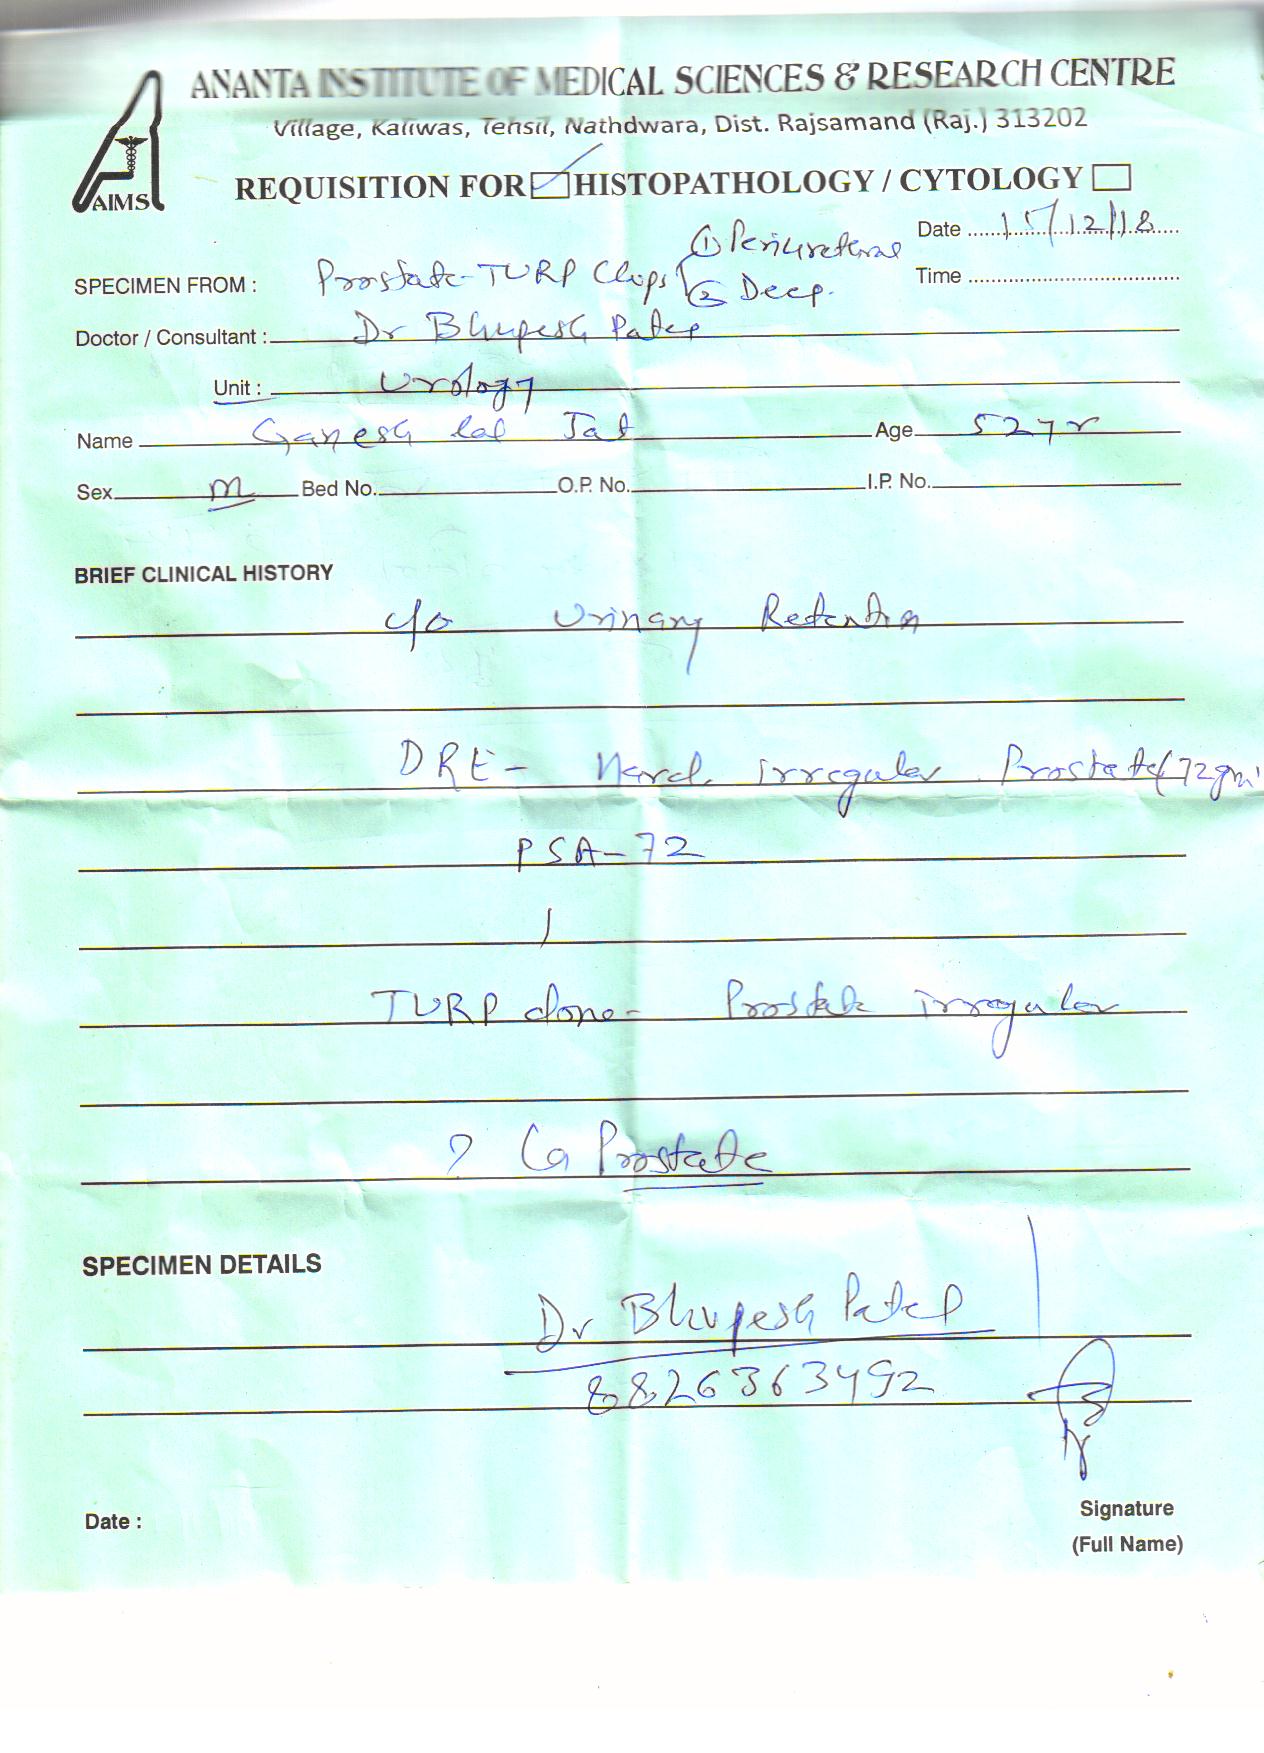 ANANTA INSTITUTE OF MEDICAL SCIENCES & RESEARCH CENTRE
Village, Kaliwas, Tehsil, Nathdwara, Dist. Rajsamand (Raj.) 313202
AIMS
REQUISITION FOR HISTOPATHOLOGY / CYTOLOGY
Date 15/12/18
Time
SPECIMEN FROM : Prostate-TURP Chips ① Periureteral
② Deep.
Doctor / Consultant : Dr Bhupesh Patel
Unit : Urology
Name Ganesh lal Jat Age 52yr
Sex M Bed No. O.P. No. I.P. No.
BRIEF CLINICAL HISTORY
c/o Urinary Retention
DRE - Hard irregular Prostate (72gm)
PSA-72
TURP done - Prostate irregular
? Ca Prostate
SPECIMEN DETAILS
Dr Bhupesh Patel
8826363492
Date :
Signature
(Full Name)